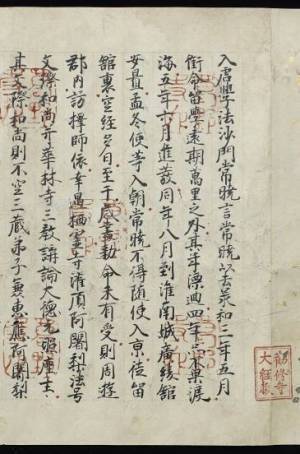 入唐學法沙門常曉言常曉以去承和三年五月
銜命留學遠期萬里之外其年漂廻四年亦不果渡
海五年六月進發同年八月到淮南城廣陵館
安置孟冬使等入朝常曉不得隨使入京徒留
館裏空經多日至于歳盡勅命未有受則周遊
郡内訪擇師依幸遇栖靈寺灌頂阿闍梨法号
文璨和尚并華林寺三教講論大德元照座主
其文璨和尚則不空三藏弟子兼惠應阿闍梨
勧修寺
大経蔵